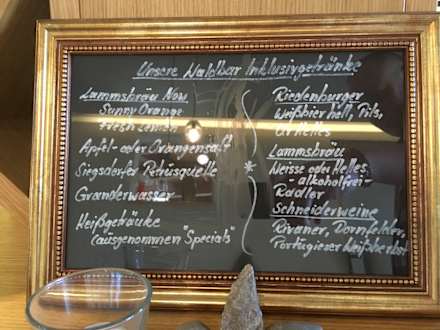 Unsere Waldbar Inklusivgetränke
Lammsbräu Now
Sunny Orange
Fresh Lemon
Apfel- oder Orangensaft
Siegsdorfer Petrusquelle
Granderwasser
Heißgetränke
(ausgenommen "Specials")
Riedenburger
Weißbier hell, Pils,
Urhelles
Lammsbräu
Weisse oder Helles
- alkoholfrei -
Radler
Schneiderweine
Rivaner, Dornfelder,
Portugieser Weißherbst